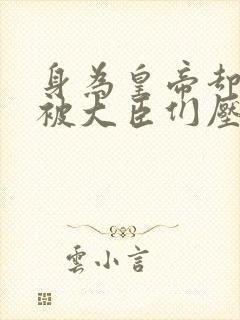 身為皇帝却
被大臣们壓
雲小言